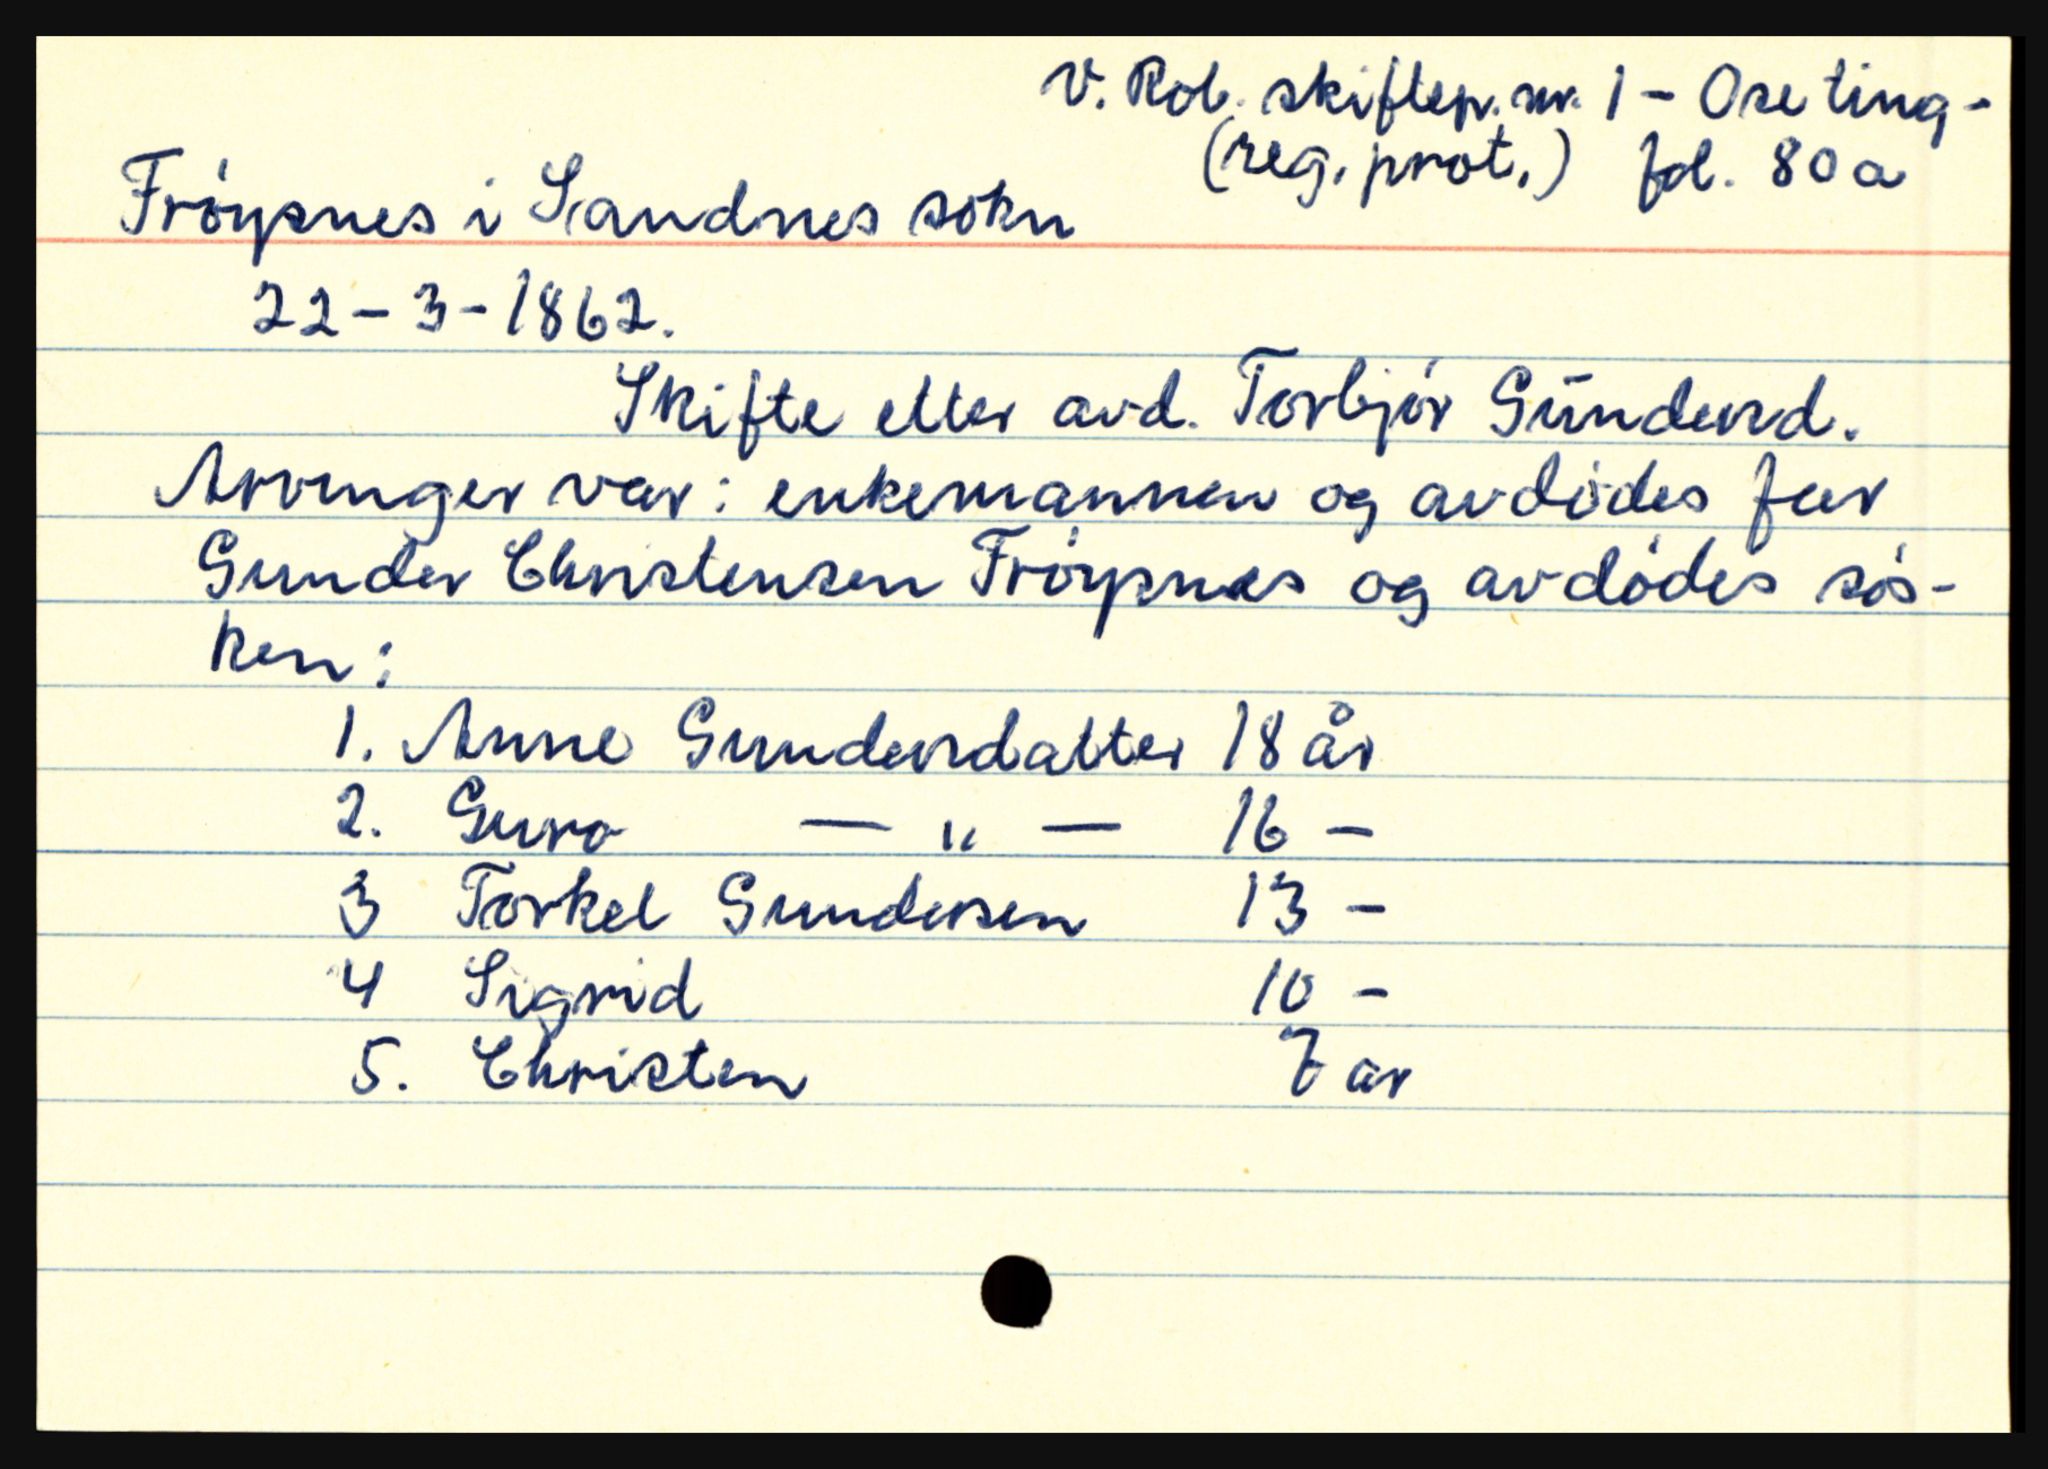 V. Rob. skiftep. nr. 1 - Ose ting -
(reg. prot.) fol. 80 a
Frøysnes i Sandnes sokn
22 - 3 - 1862.
Skifte etter avd. Torbjør Gūndersd.
Arvinger var: enkemannen og avdødes far
Gunder Christensen Frøysnes og avdødes søs-
ken:
1. Anne Gundersdatter 18 år
2. Guro — " — 16 -
3 Torkel Gundersen 13 -
4 Sigrid 10 -
5. Christen 7 år